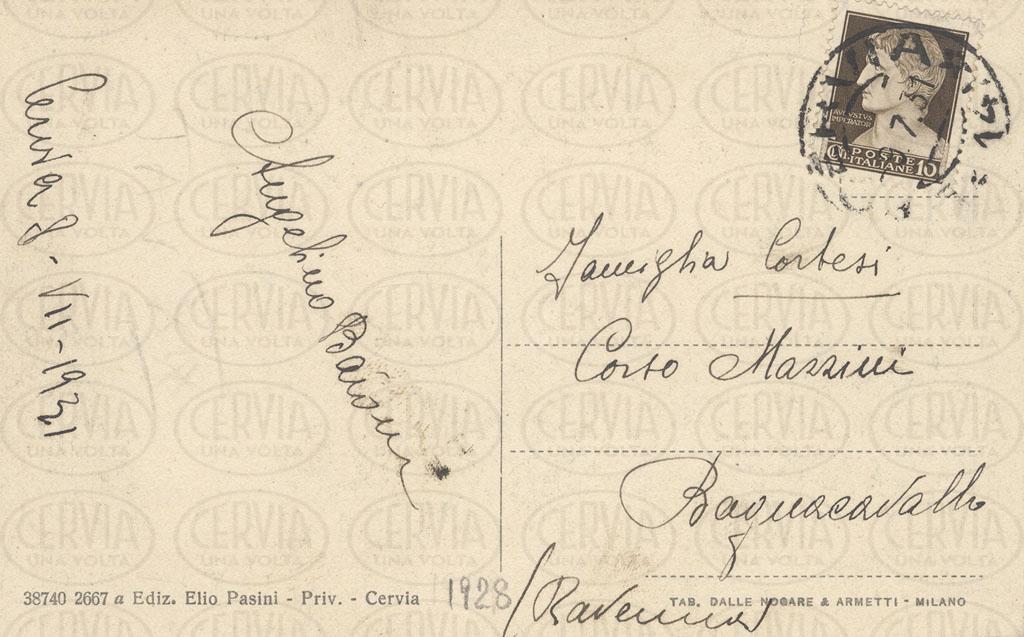 Cervia 8 - VII - 1931
Angelino Baroni
AVGVSTVS
IMPERATOR
POSTE
ITALIANE 10
Famiglia Cortesi
Corso Mazzini
Bagnacavallo
(Ravenna)
38740 2667 a Ediz. Elio Pasini - Priv. - Cervia
1928
TAB. DALLE NOGARE & ARMETTI - MILANO
CERVIA
UNA VOLTA